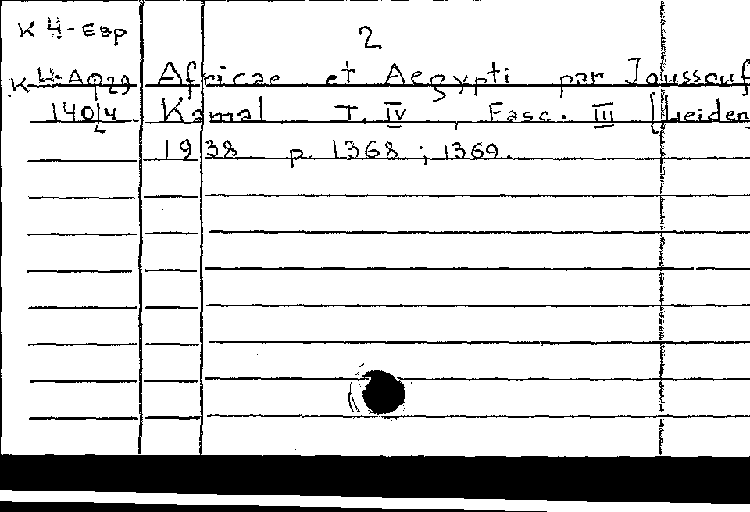 К 4-Евр
2
К 4-Афр Africae et Aegypti par Joussouf
140/4 Kamal T. IV, Fasc. III [Leiden
1938 p. 1368; 1369.